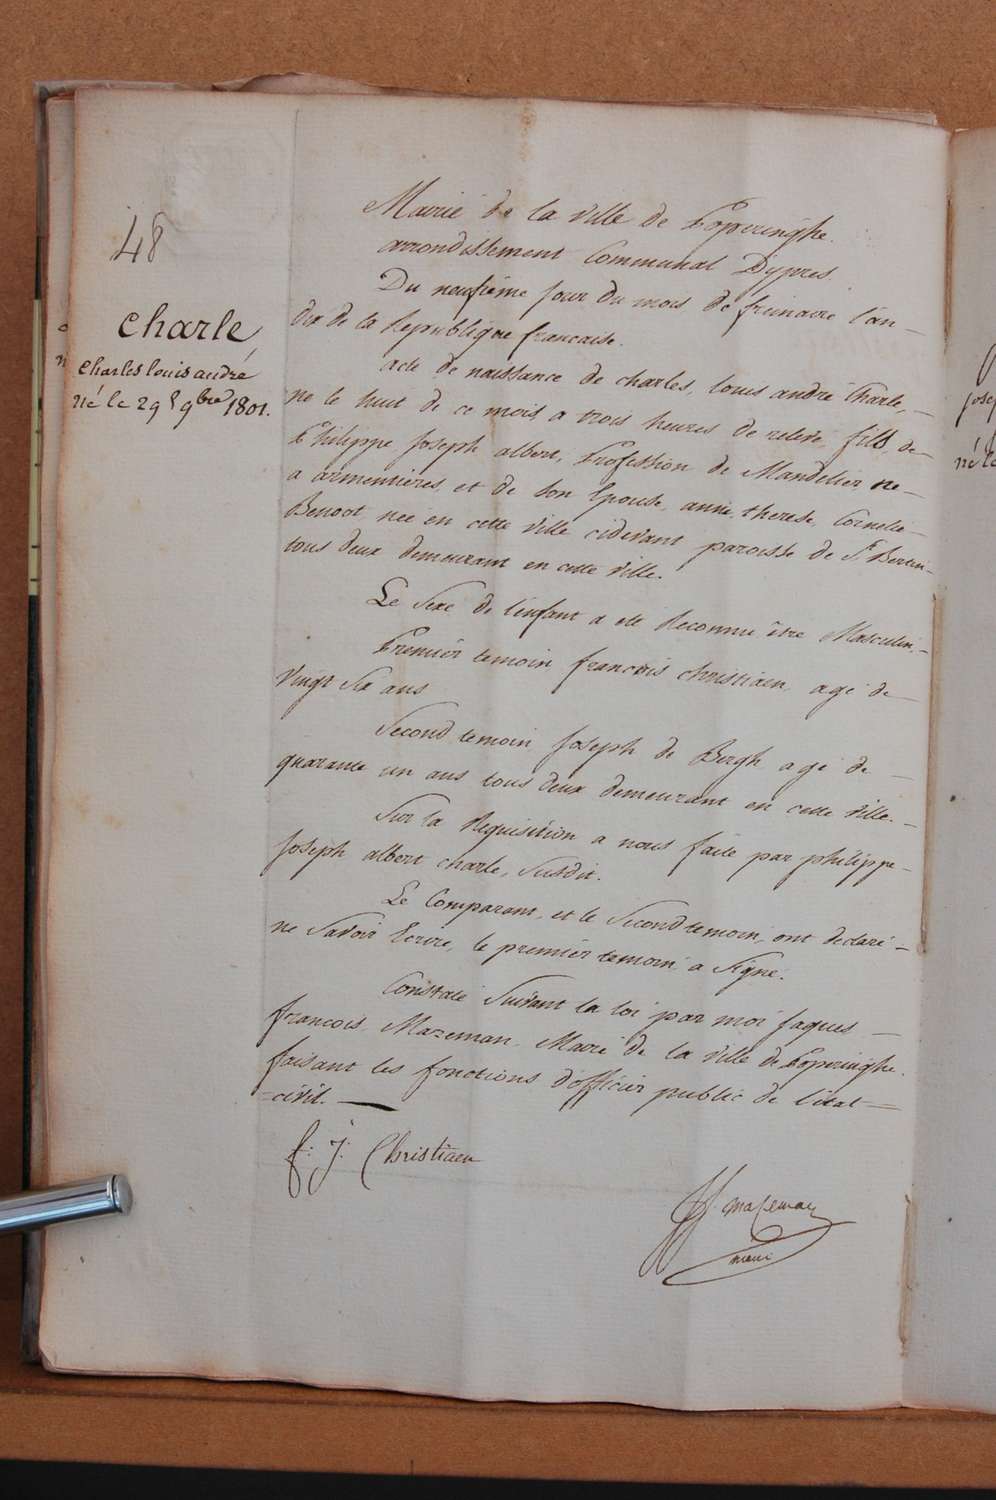 48
Charle
Charles louis andré
né le 29 9bre 1801.
Mairie de la ville de Poperinghe.
arrondissement Communal Dypres
Du neufième jour du mois de frimaire l'an
dix de la Republique francaise.
acte de naissance de charles, louis andré Charle,
ne le huit de ce mois, a trois heures de relevé, fils de
Philippe Joseph albert, Profession de Mandelier, ne
a armentières, et de son Epouse, anne, therese, Cornelie
Benoot née en cette ville cidevant paroisse de St Bertin
tous deux demeurant en cette ville.
Le Sexe de l'enfant a eté Reconnu être Masculin,
Premier temoin francois christiaen, agé de
vingt Six ans
Second temoin, Joseph de Bergh agé de
quarante un ans tous deux demeurant en cette ville.
Sur la Requisition a nous faite par philippe
Joseph albert charle, Susdit.
Le Comparant, et le Second temoin, ont declaré
ne Savoir Ecrire, le premier temoin a Signé.
Constaté Suivant la loi par moi Jaques
francois, Mazeman Maire de la ville de Poperinghe.
faisant les fonctions d'officier public de l'etat
=civil.
f: J: Christiaen
JF mazeman
maire